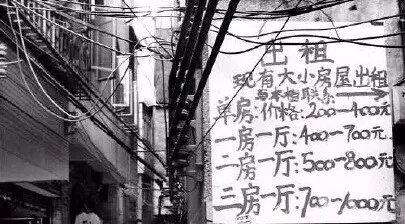 出租
现有大小房屋出租
与本楼联系
单房:价格:200-400元
一房一厅:400-700元
二房一厅:500-800元
三房一厅:700-1000元